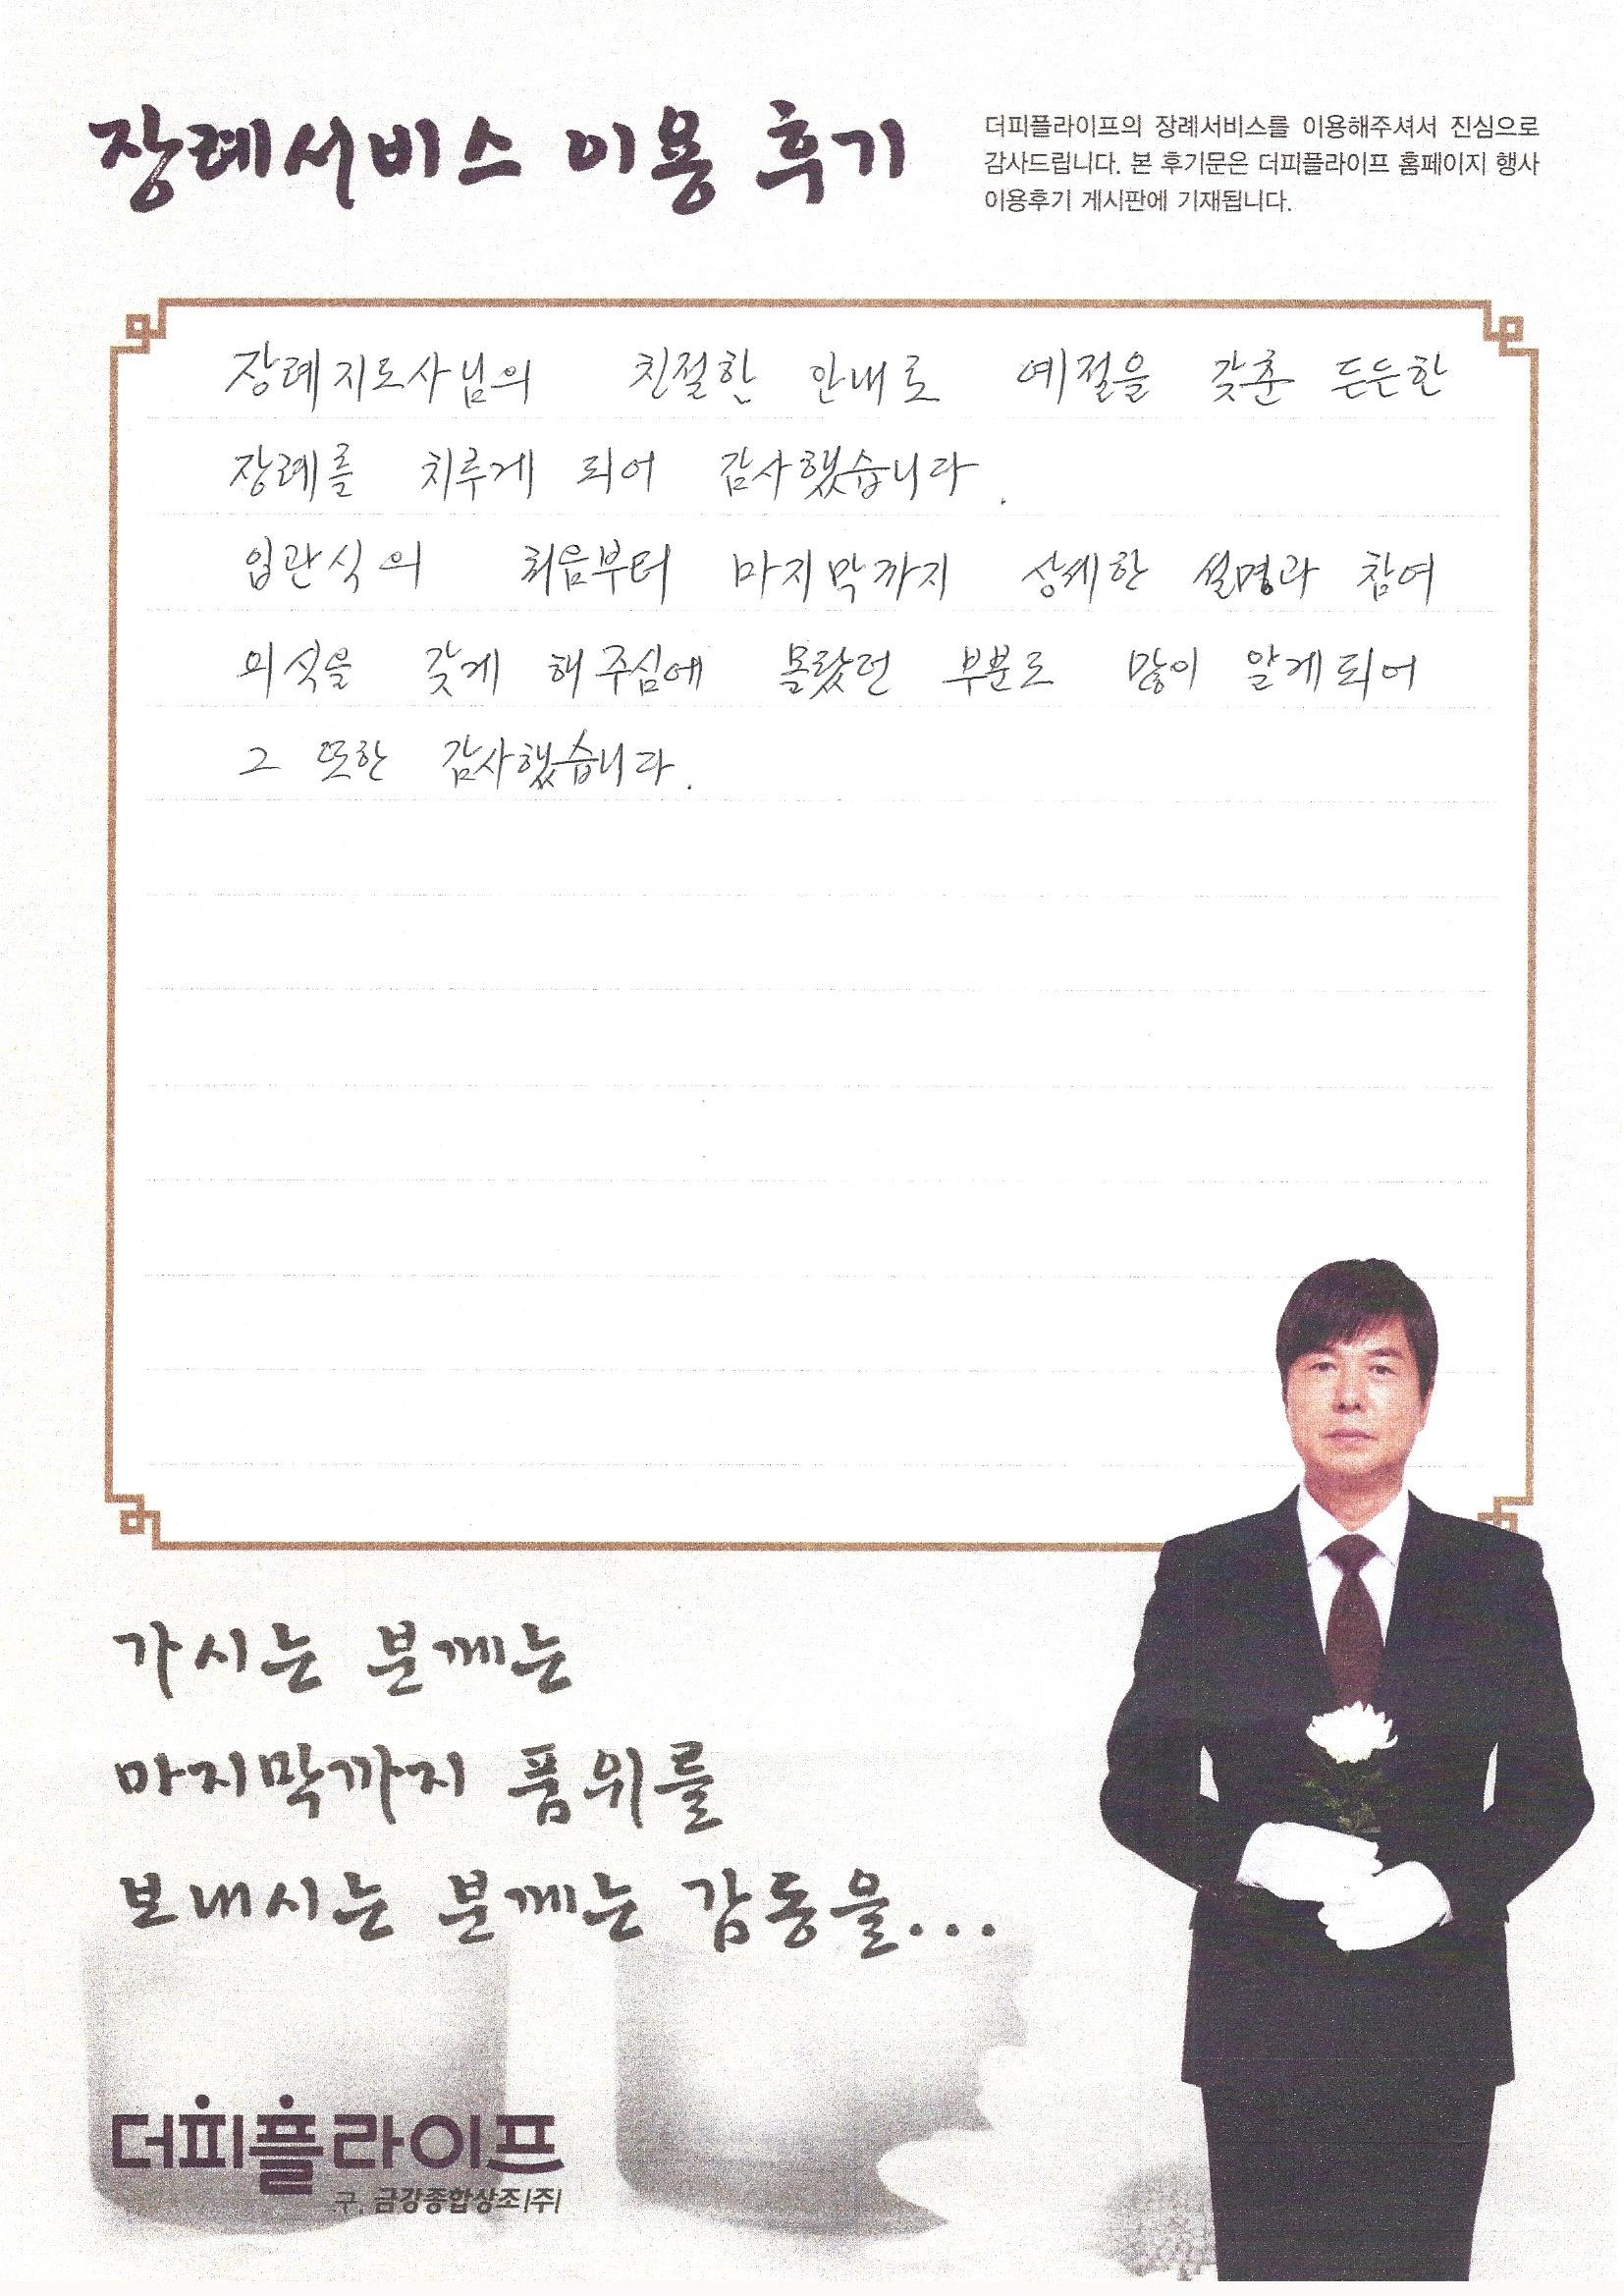 장례서비스 이용 후기
더피플라이프의 장례서비스를 이용해주셔서 진심으로
감사드립니다. 본 후기문은 더피플라이프 홈페이지 행사
이용후기 게시판에 기재됩니다.
장례지도사님의 친절한 안내로 예절을 갖춘 든든한
장례를 치루게 되어 감사했습니다.
입관식의 처음부터 마지막까지 상세한 설명과 참여
의식을 갖게 해주심에 몰랐던 부분도 많이 알게되어
그 또한 감사했습니다.
가시는 분께는
마지막까지 품위를
보내시는 분께는 감동을...
더피플라이프
구. 금강종합상조(주)